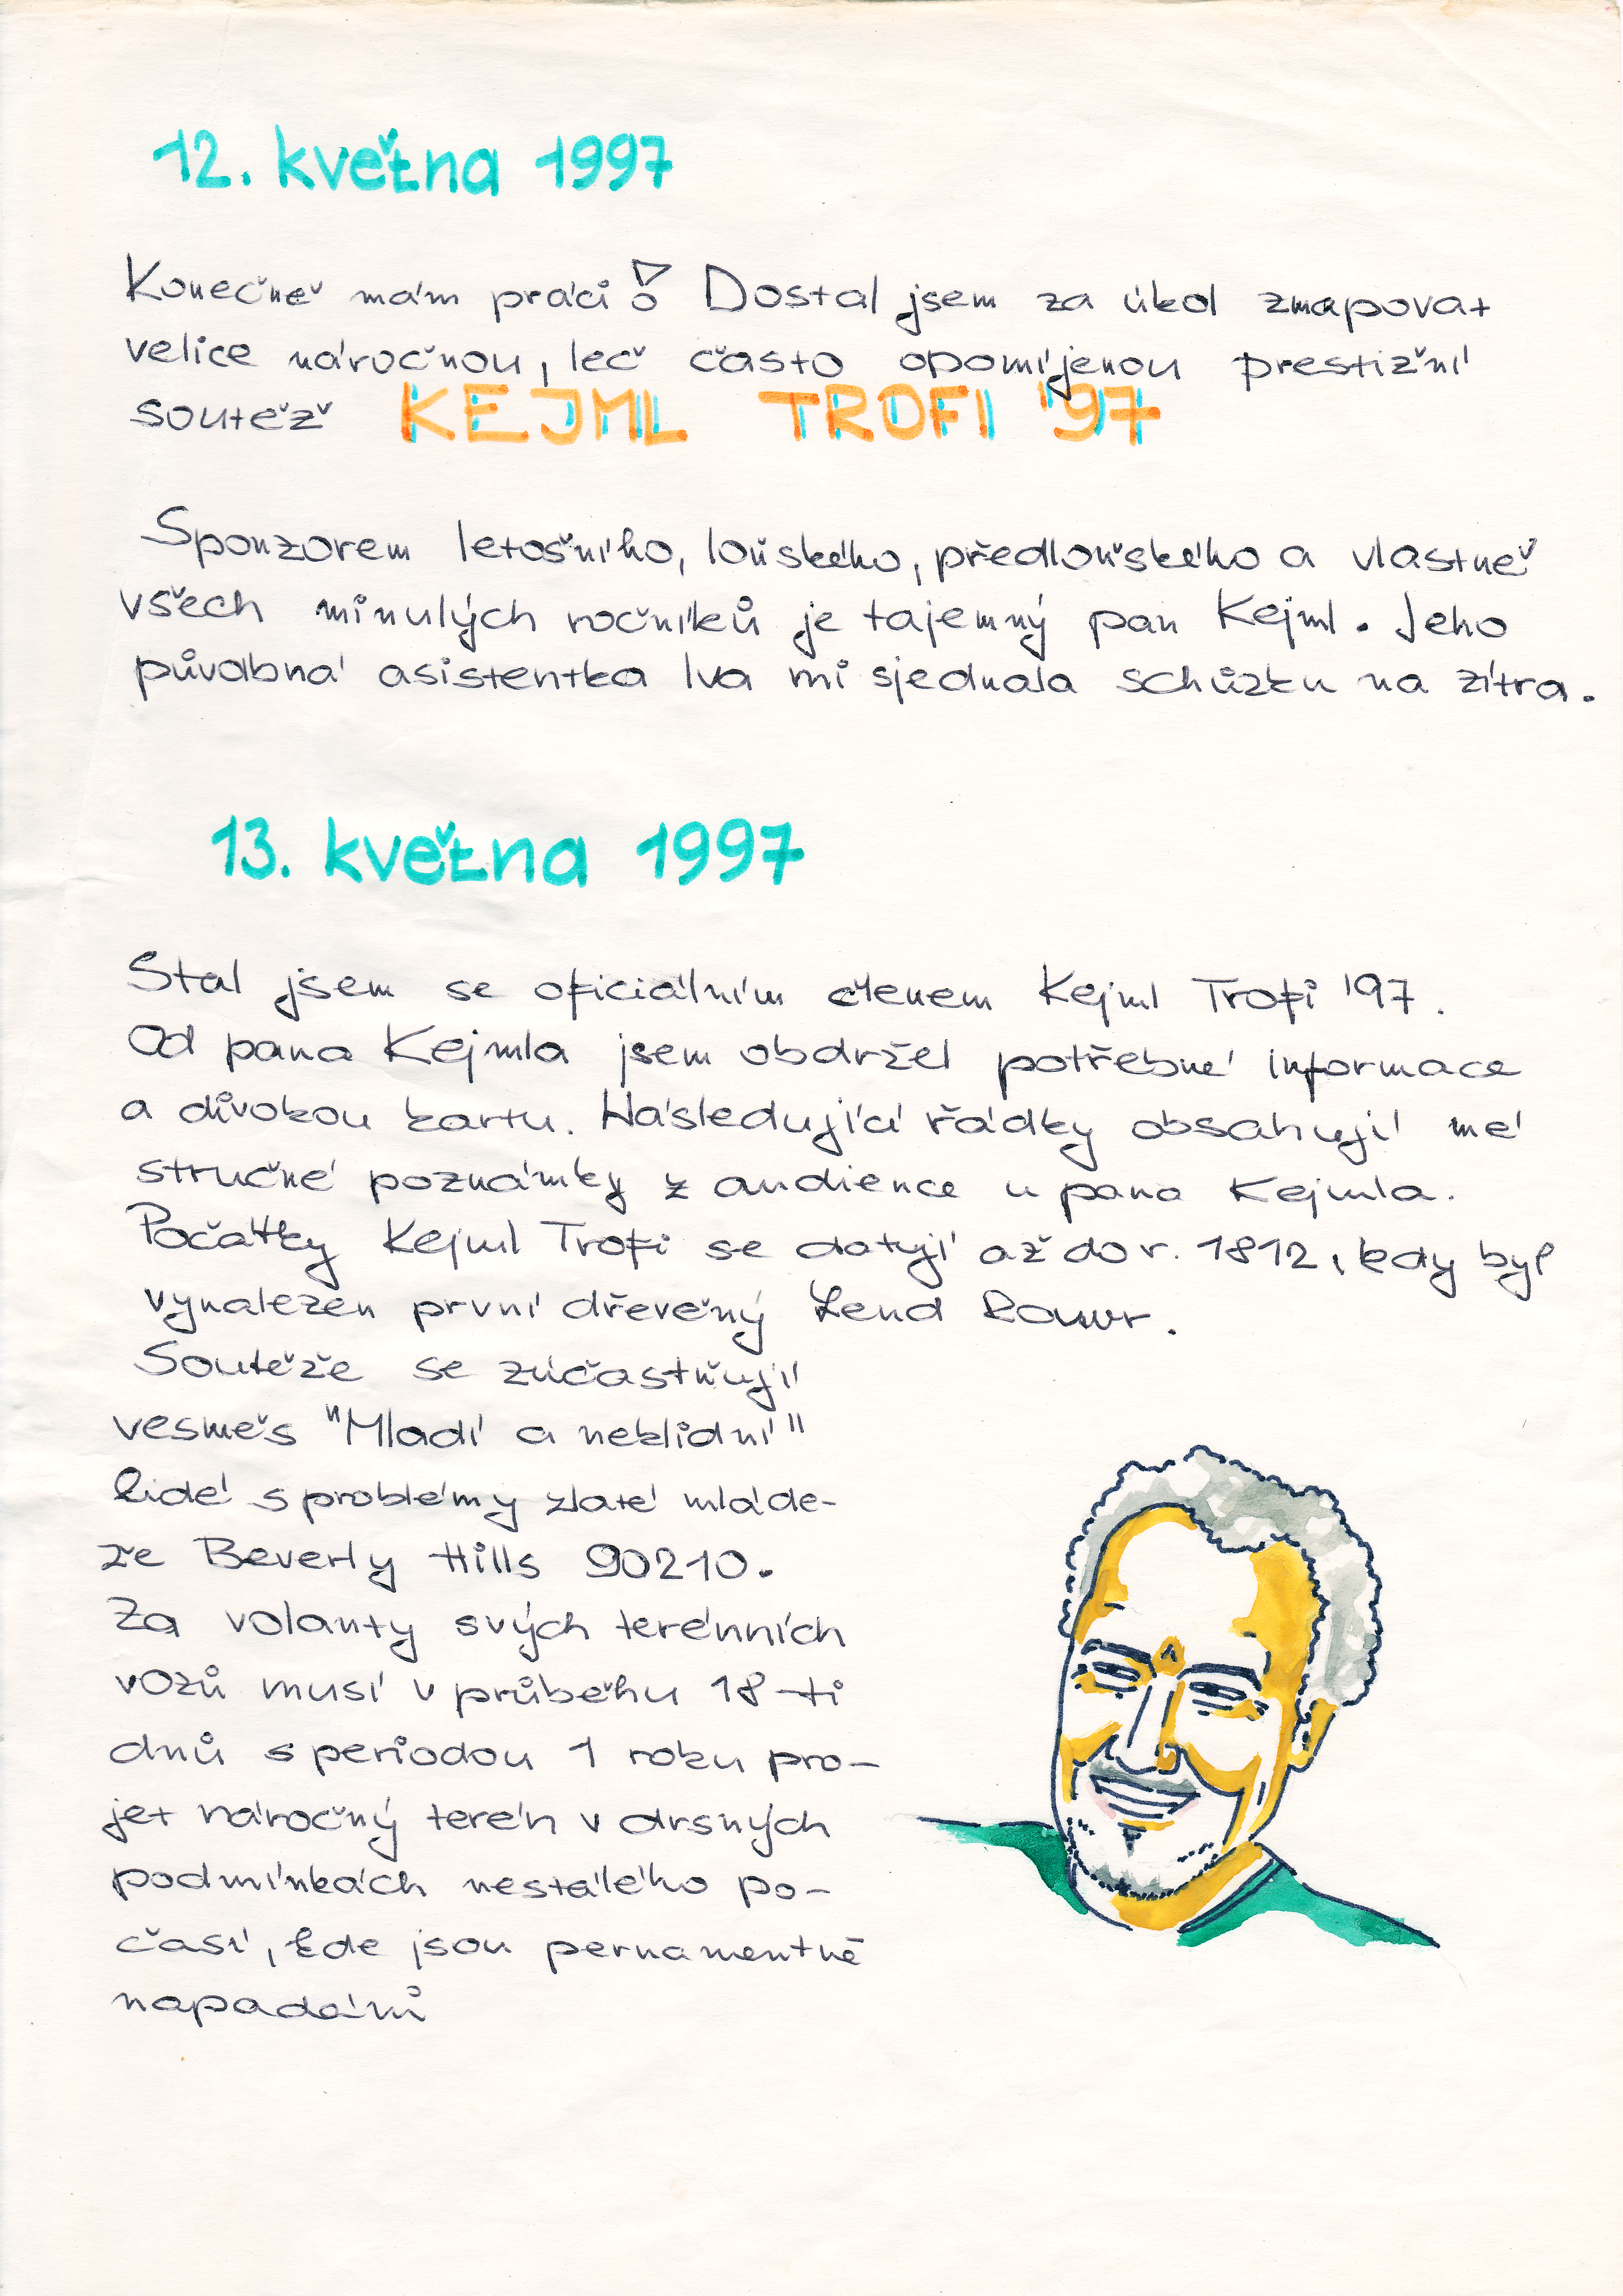 12. května 1997
Konečně mám práci! Dostal jsem za úkol zmapovat
velice náročnou, leč často opomíjenou prestižní
soutěž KEJML TROFI '97
Sponzorem letošního, loňského, předloňského a vlastně
všech minulých ročníků je tajemný pan Kejml. Jeho
půvabná asistentka Iva mi sjednala schůzku na zítra.
13. května 1997
Stal jsem se oficiálním členem Kejml Trofi '97.
Od pana Kejmla jsem obdržel potřebné informace
a divokou kartu. Následující řádky obsahují mé
stručné poznámky z audience u pana Kejmla.
Počátky Kejml Trofi se datují až do r. 1812, kdy byl
vynalezen první dřevěný Lend Rouvr.
Soutěže se zúčastňují
vesměs "Mladí a neklidní"
lidé s problémy zlaté mláde-
že Beverly Hills 90210.
Za volanty svých terénních
vozů musí v průběhu 18-ti
dnů s periodou 1 roku pro-
jet náročný terén v drsných
podmínkách nestálého po-
časí, kde jsou pernamentně
napadáni